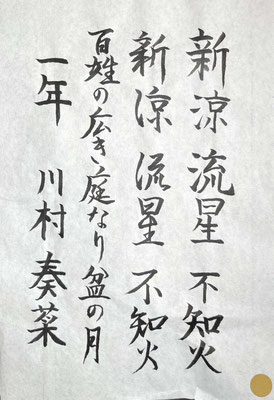 新涼 流星 不知火
新涼 流星 不知火
百姓の広き庭なり盆の月
一年 川村奏菜